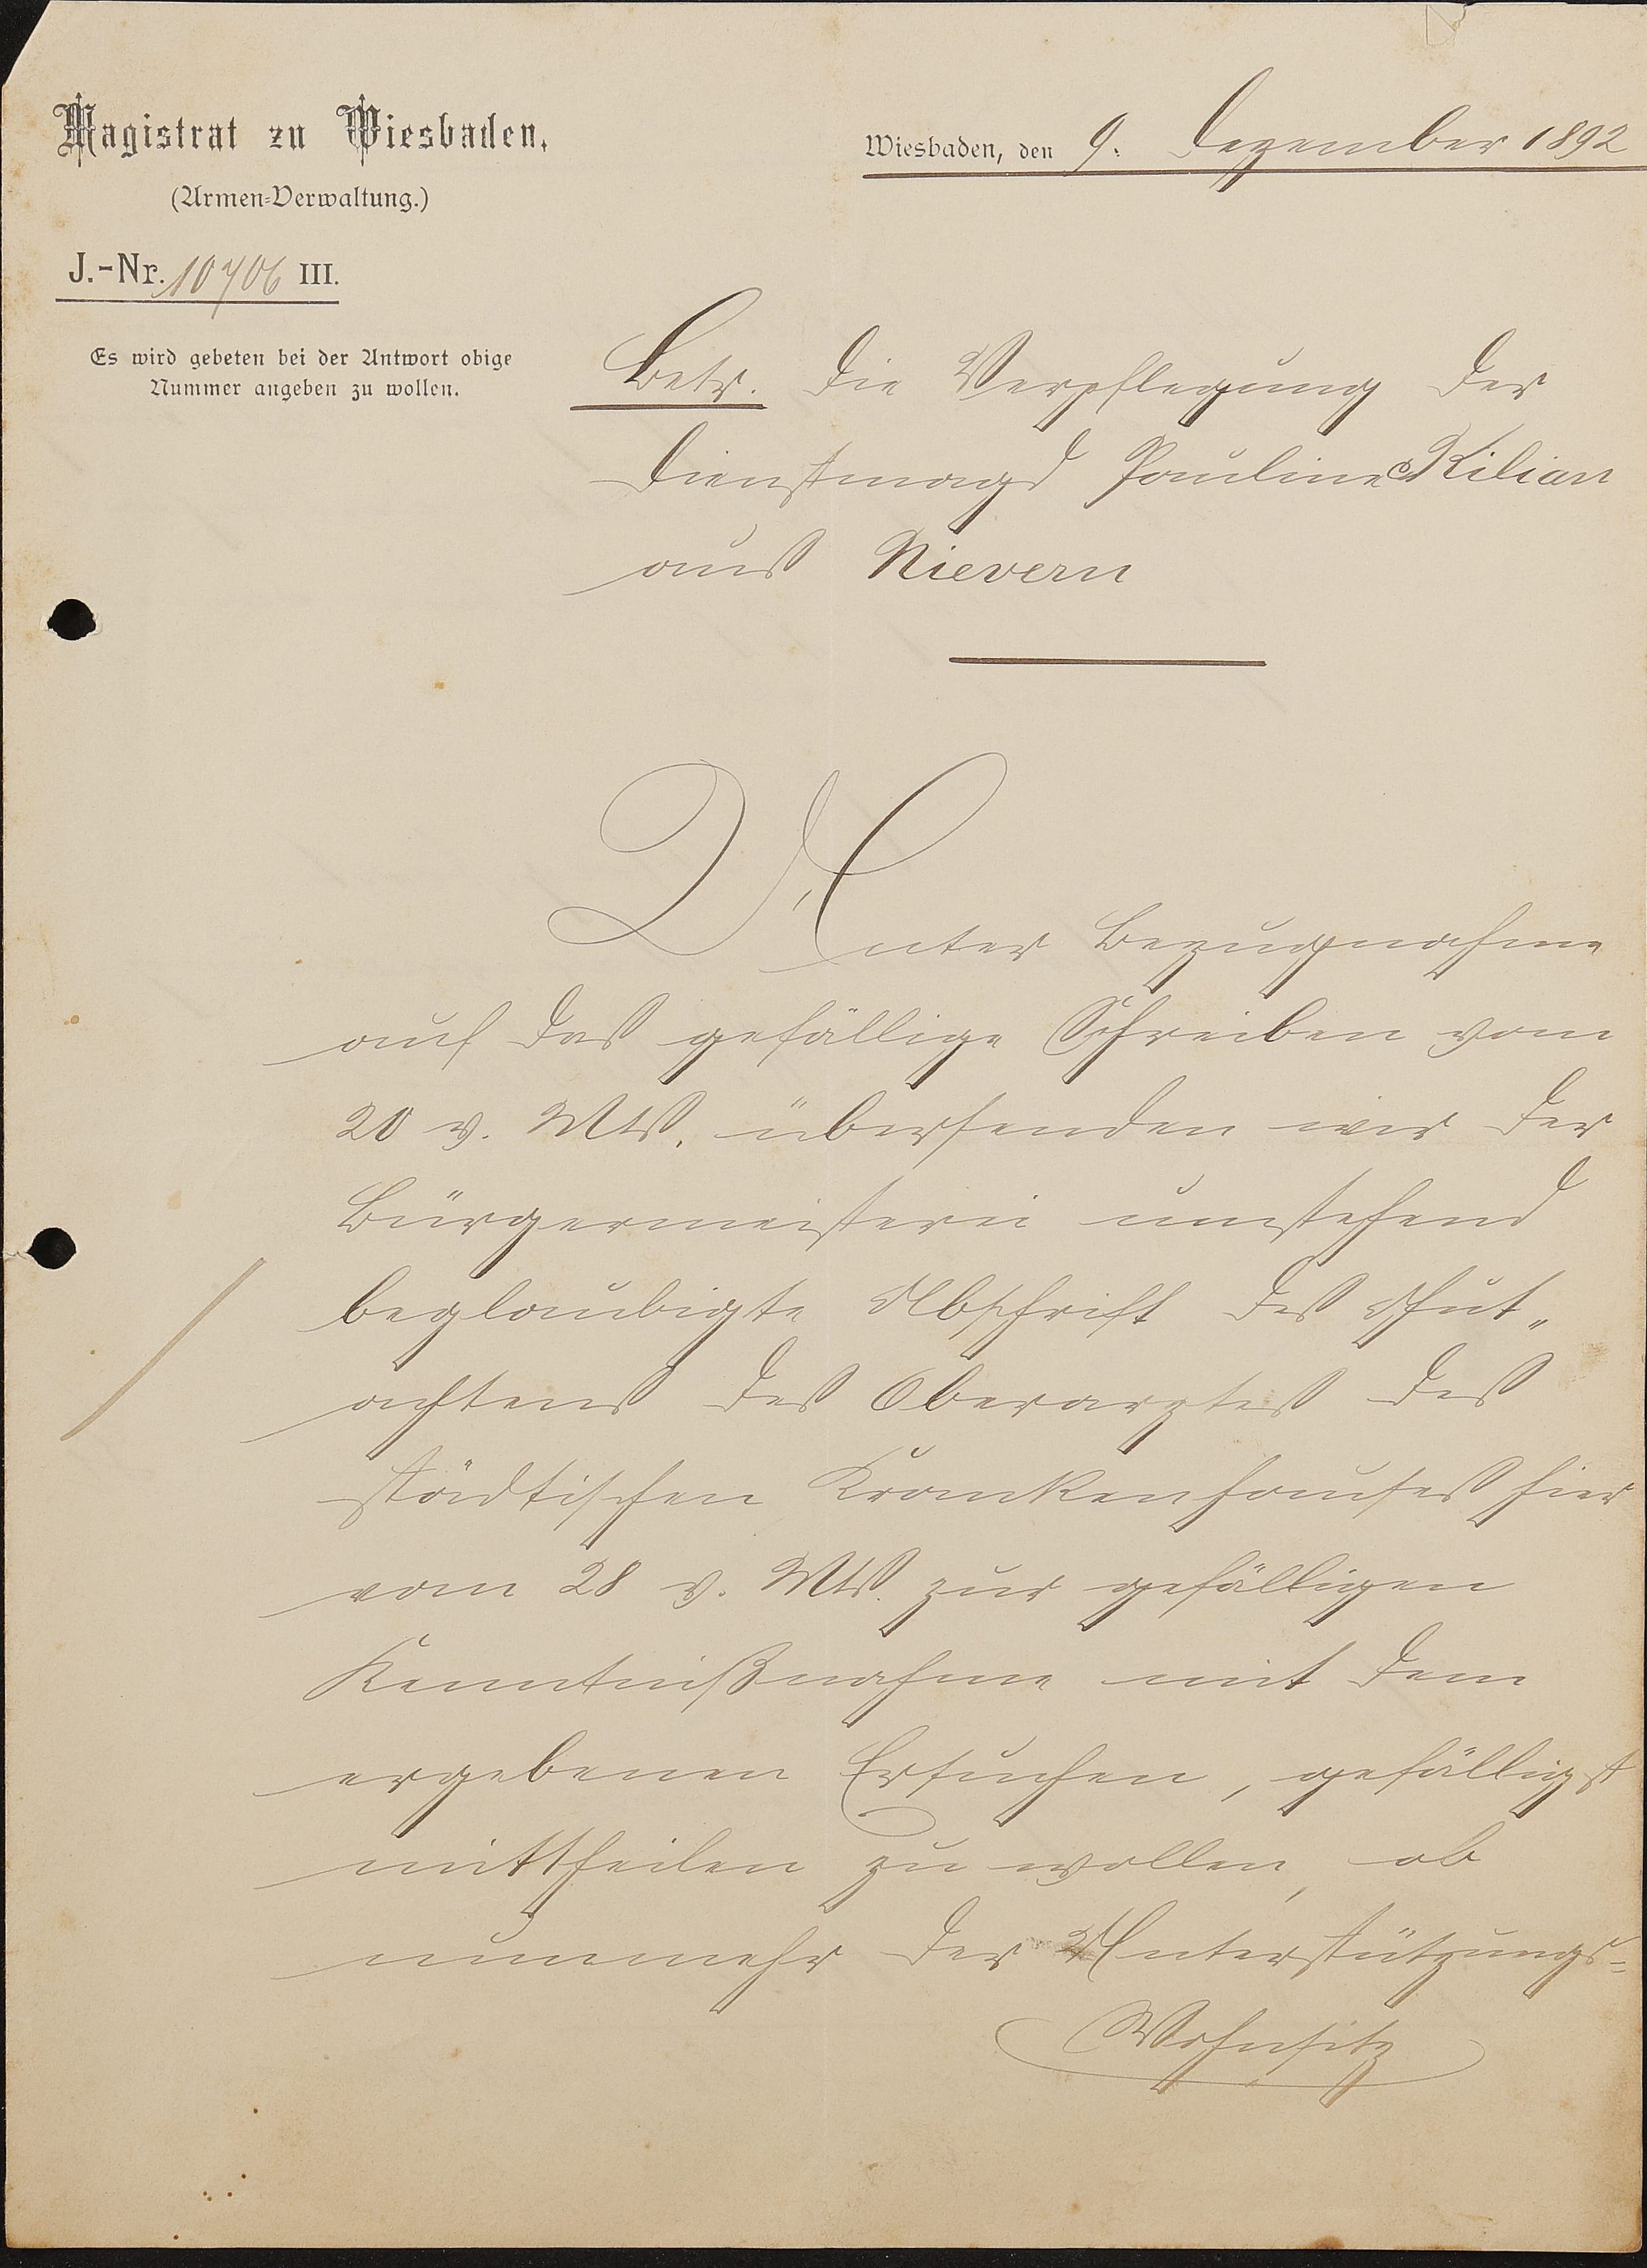 Magistrat zu Wiesbaden.
(Armen-Verwaltung.)
J.-Nr. 10706 III.
Es wird gebeten bei der Antwort obige
Nummer angeben zu wollen.
Wiesbaden, den 9. Dezember 1892
Betr. die Verpflegung der
Dienstmagd Pauline Kilian
aus Nievern
Unter Bezugnahme
auf das gefällige Schreiben vom
20 v. Mts. übersenden wir der
Bürgermeisterei umstehend
beglaubigte Abschrift des Gut„
achtens des Oberarztes des
städtischen Krankenhauses hier
vom 28 v. Mts. zur gefälligen
Kenntnißnahme mit dem
ergebenen Ersuchen, gefälligst
mittheilen zu wollen, ob
nunmehr der Unterstützungs=
Wohnsitz